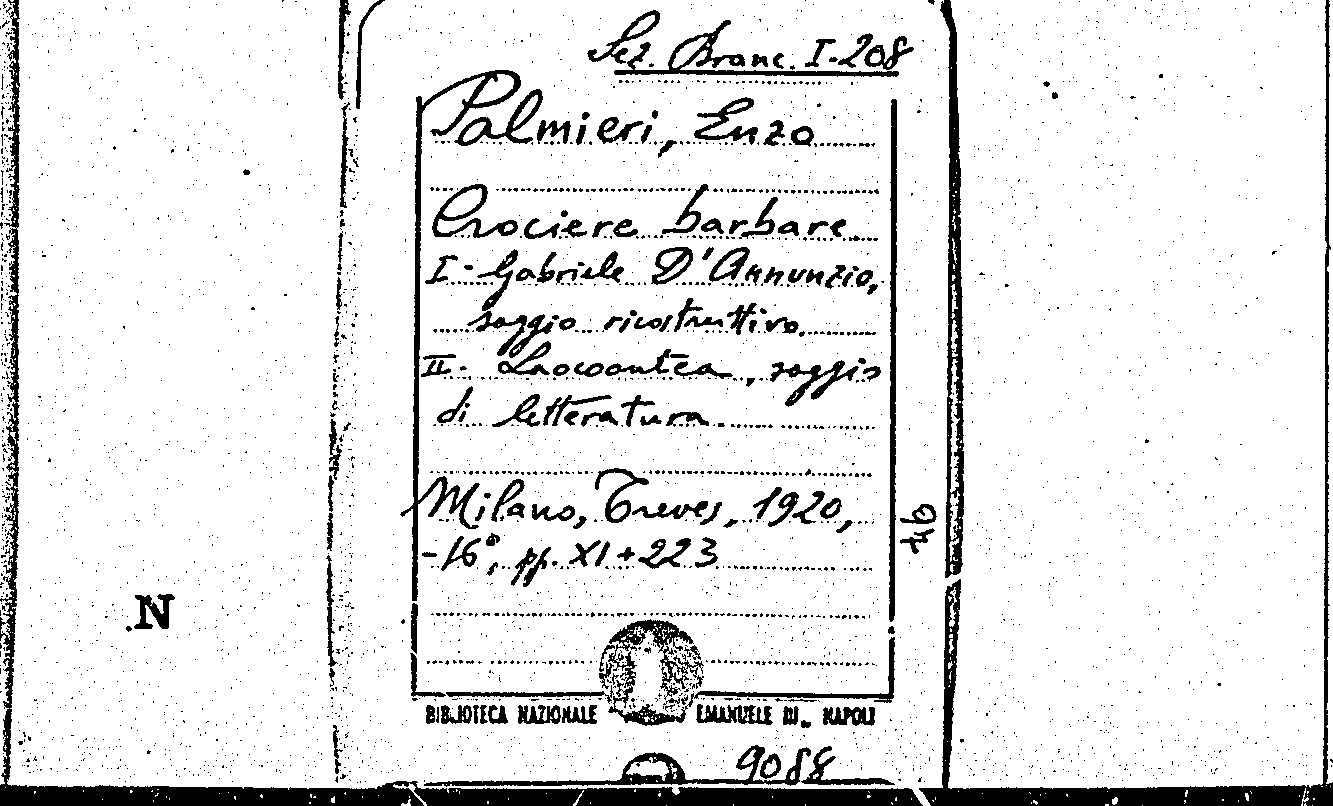 Sez. Branc. I-208
Palmieri, Enzo
Crociere barbare.
I - Gabriele D'Annunzio,
saggio ricostruttivo.
II - Laocoontea, saggio
di letteratura.
Milano, Treves, 1920,
-16°, pp. XI + 223
N
BIBLIOTECA NAZIONALE EMANUELE III NAPOLI
9088